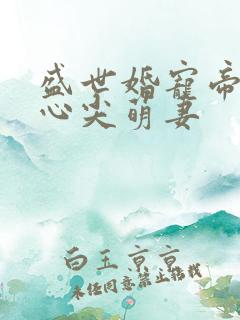 盛世婚寵帝
心尖萌妻
白玉京京
未经同意禁止转载